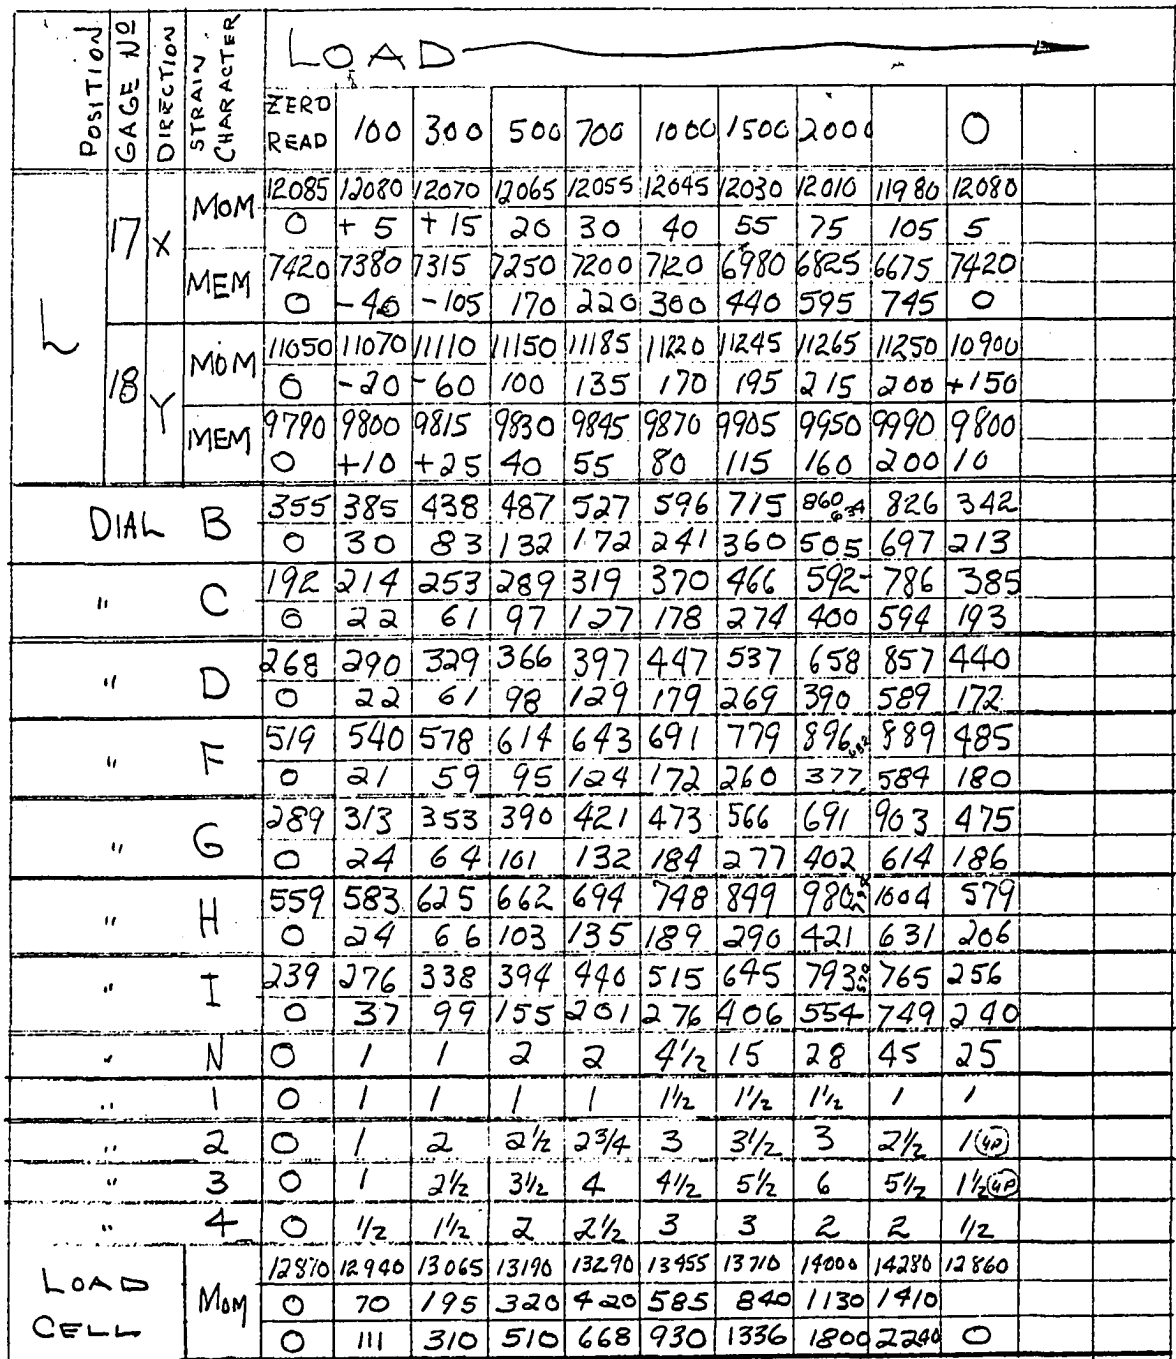 POSITION GAGE Nº DIRECTION STRAIN CHARACTER LOAD
ZERO READ 100 300 500 700 1000 1500 2000 0
L 17 X MOM 12085 12080 12070 12065 12055 12045 12030 12010 11980 12080
0 + 5 + 15 20 30 40 55 75 105 5
MEM 7420 7380 7315 7250 7200 7120 6980 6825 6675 7420
0 -40 -105 170 220 300 440 595 745 0
18 Y MOM 11050 11070 11110 11150 11185 11220 11245 11265 11250 10900
0 -20 -60 100 135 170 195 215 200 +150
MEM 9790 9800 9815 9830 9845 9870 9905 9950 9990 9800
0 +10 +25 40 55 80 115 160 200 10
DIAL B 355 385 438 487 527 596 715 860 634 826 342
0 30 83 132 172 241 360 505 697 213
" C 192 214 253 289 319 370 466 592- 786 385
0 22 61 97 127 178 274 400 594 193
" D 268 290 329 366 397 447 537 658 857 440
0 22 61 98 129 179 269 390 589 172
" F 519 540 578 614 643 691 779 896 889 485
0 21 59 95 124 172 260 377 584 180
" G 289 313 353 390 421 473 566 691 903 475
0 24 64 101 132 184 277 402 614 186
" H 559 583 625 662 694 748 849 980 1004 579
0 24 66 103 135 189 290 421 631 206
" I 239 276 338 394 440 515 645 793 765 256
0 37 99 155 201 276 406 554 749 240
" N 0 1 1 2 2 4 1/2 15 28 45 25
" 1 0 1 1 1 1 1 1/2 1 1/2 1 1/2 1 1
" 2 0 1 2 2 1/2 2 3/4 3 3 1/2 3 2 1/2 1 UP
" 3 0 1 2 1/2 3 1/2 4 4 1/2 5 1/2 6 5 1/2 1 1/2 UP
" 4 0 1/2 1 1/2 2 2 1/2 3 3 2 2 1/2
LOAD CELL MOM 12870 12940 13065 13190 13290 13455 13710 14000 14280 12860
0 70 195 320 420 585 840 1130 1410
0 111 310 510 668 930 1336 1800 2240 0